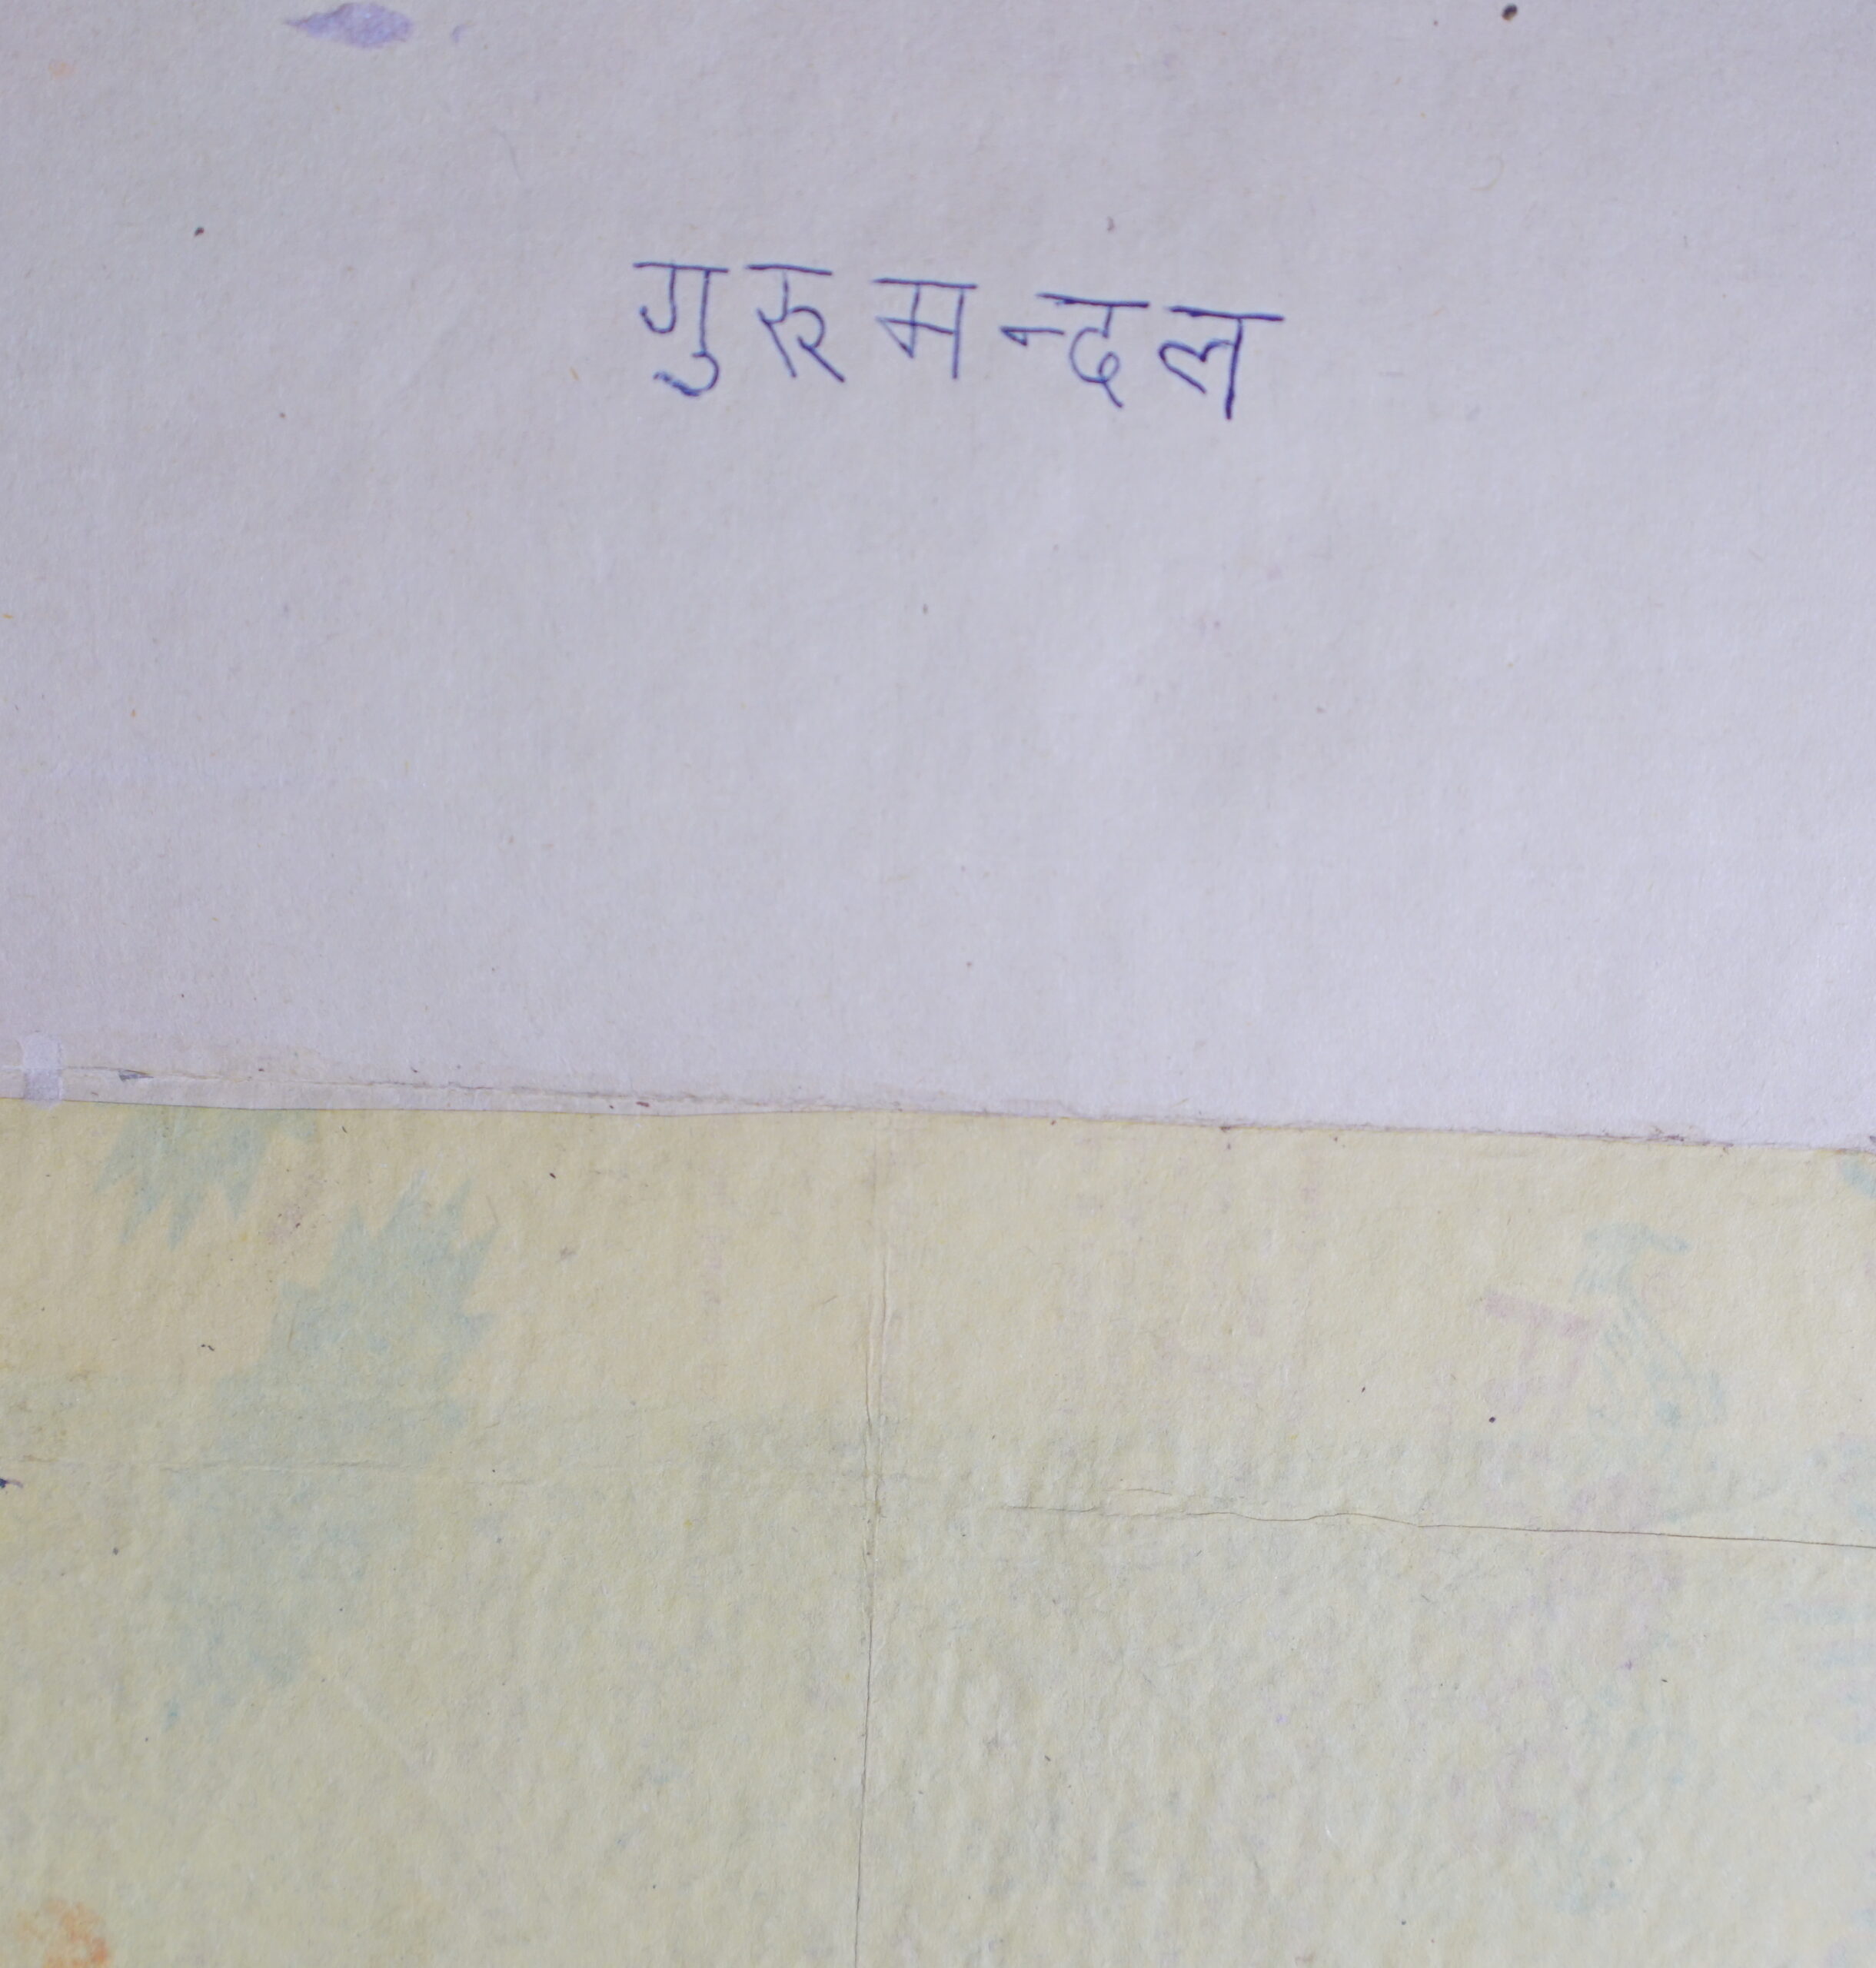 गुरुमन्दल